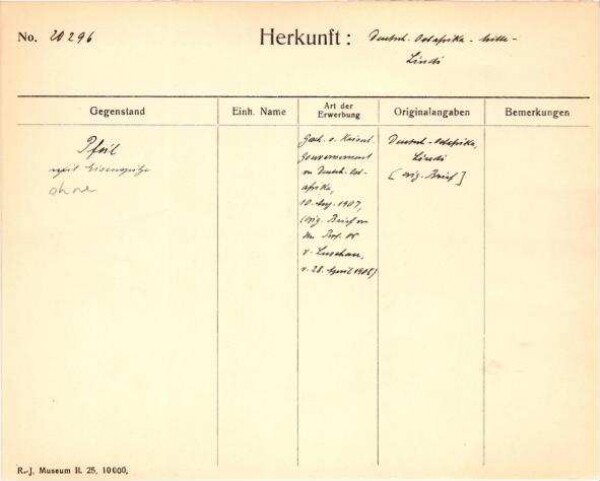 No. 20296
Herkunft: Deutsch. Ostafrika -
Lindi
Gegenstand
Einh. Name
Art der
Erwerbung
Originalangaben
Bemerkungen
Pfeil
mit Eisenspitze
ohne
Gesch. v. Kaiserl.
Gouvernement
von Deutsch. Ost-
afrika,
10. Aug. 1907,
(orig. Brief von
dem Prof. Dr
v. Luschan,
v. 28. April 1908)
Deutsch-Ostafrika,
Lindi
[orig. Brief]
R.-J. Museum II. 25. 10000.